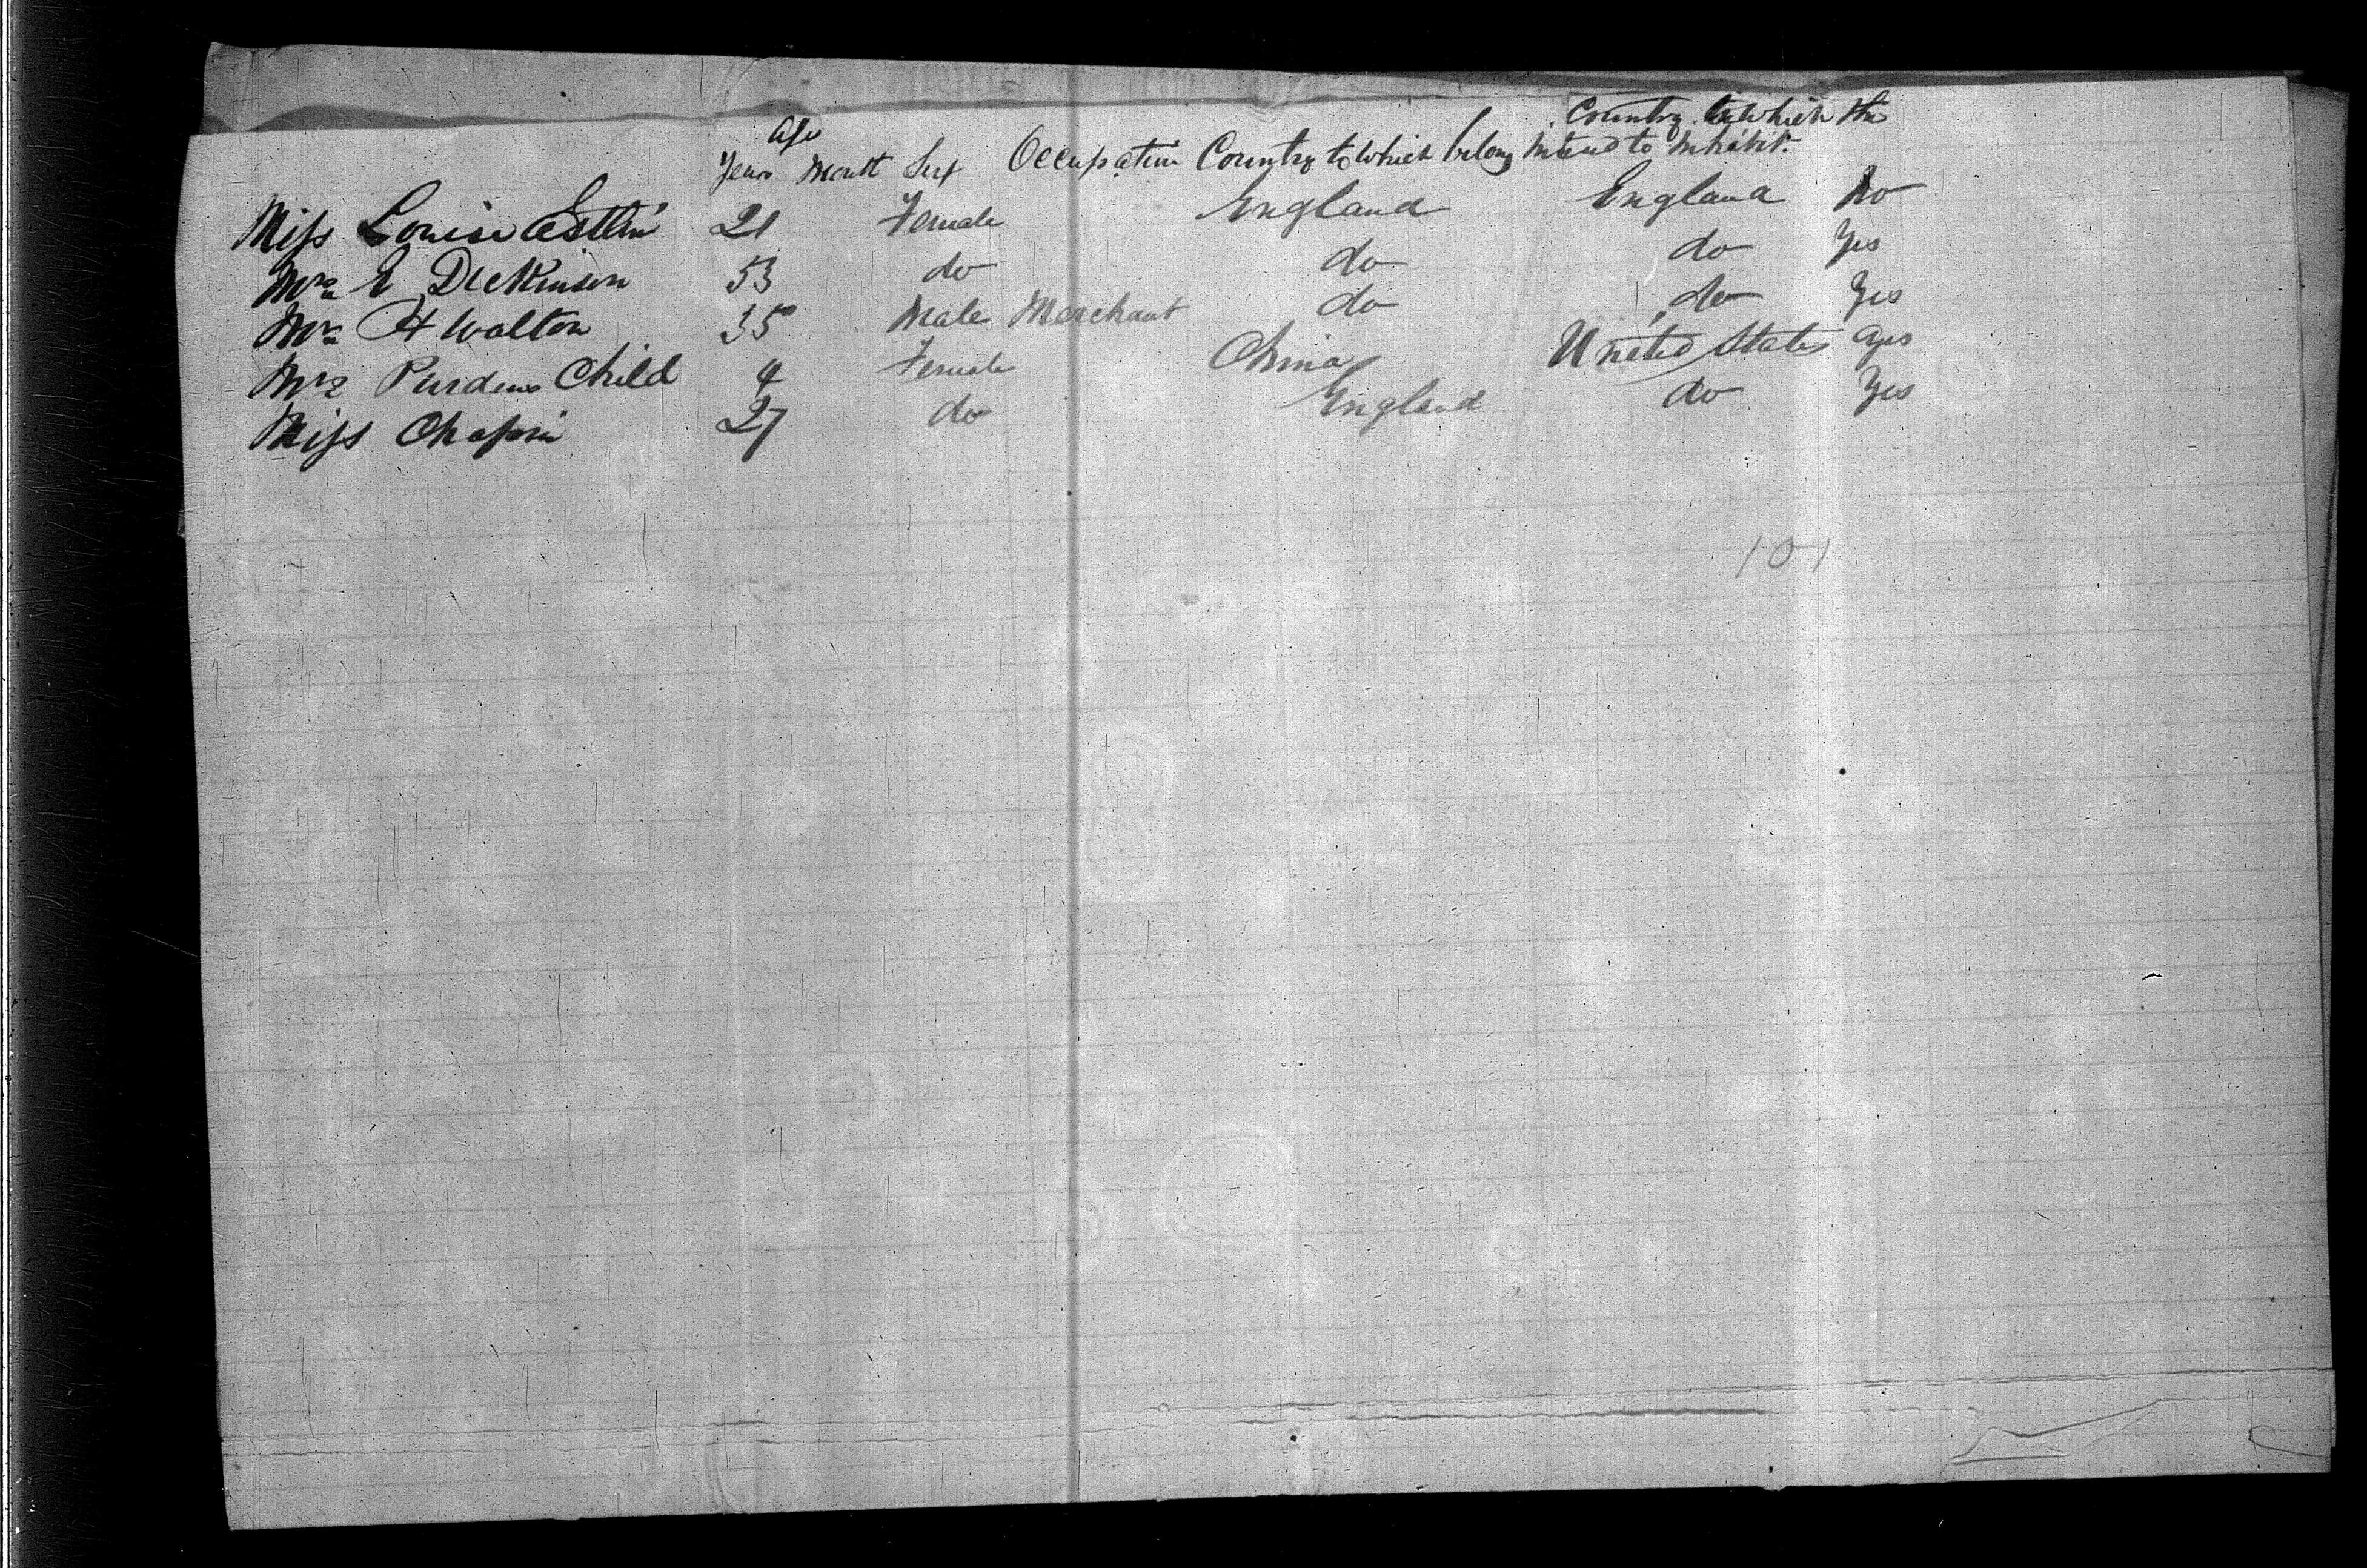 Age Country to which the
Years Month Sex Occupation Country to which belong intend to inhabit.
Miss Louise Estlin 21 Female England England No
Mrs E Dickinson 53 do do do Yes
Mr H Walton 35 Male Merchant do do Yes
Child 4 Female China United States Yes
Miss Chapin 27 do England do Yes
101